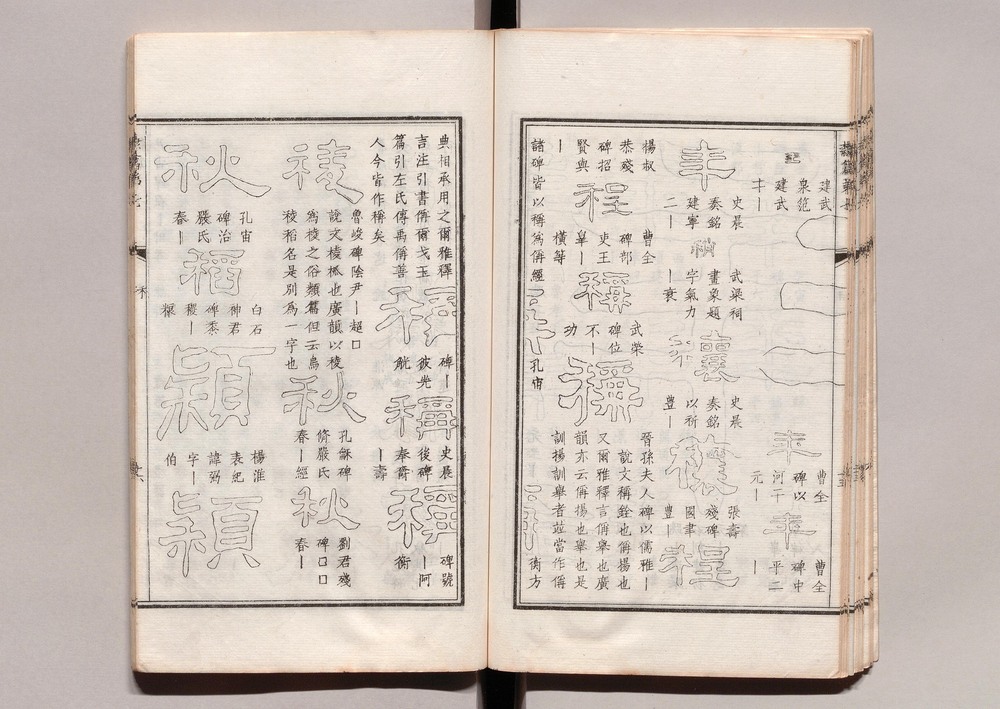 建武
泉範
建武
年
曹全
碑以
河平
元一
年
曹全
碑中
平二
一
年
史晨
奏銘
建寧
二一
武梁祠
畫象題
字氣力
一衰
史晨
奏銘
以祈
豊一
穰
張壽
殘碑
國
豊一
程
楊叔
恭殘
碑招
賢與
一
程
曹全
碑部
吏王
皋一
稱
武榮
碑位
不一
功
稱
晉孫夫人碑以儒雅一
說文稱銓也偁揚也
又爾雅釋言偁舉也廣
韻亦云偁揚也舉也是
訓揚訓舉者並當作偁
諸碑皆以稱為偁經
橫等
孔宙
衡方
典相承用之爾雅釋
言注引書偁爾戈玉
篇引左氏傳禹偁善
人今皆作稱矣
稱
碑一
彼兕
觥
稱
史晨
後碑
奉觴
一壽
稱
碑號
一阿
衡
稜
魯峻碑陰尹一超口
說文棱柧也廣韻以稜
為棱之俗類篇但云烏
稜稻名是別為一字也
秋
孔龢碑
脩嚴氏
春一經
秋
劉君殘
碑口口
春一
秋
孔宙
碑治
嚴氏
春一
稻
白石
神君
碑黍
稷一
糧
穎
楊淮
表紀
諱弼
字一
伯
穎